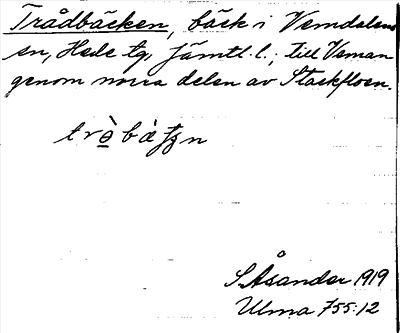 Trådbäcken, bäck i Vemdalens
sn, Hede tg, Jämtl. l.; till Veman
genom norra delen av Stackfloen.
S Åsander 1919
Ulma 755:12